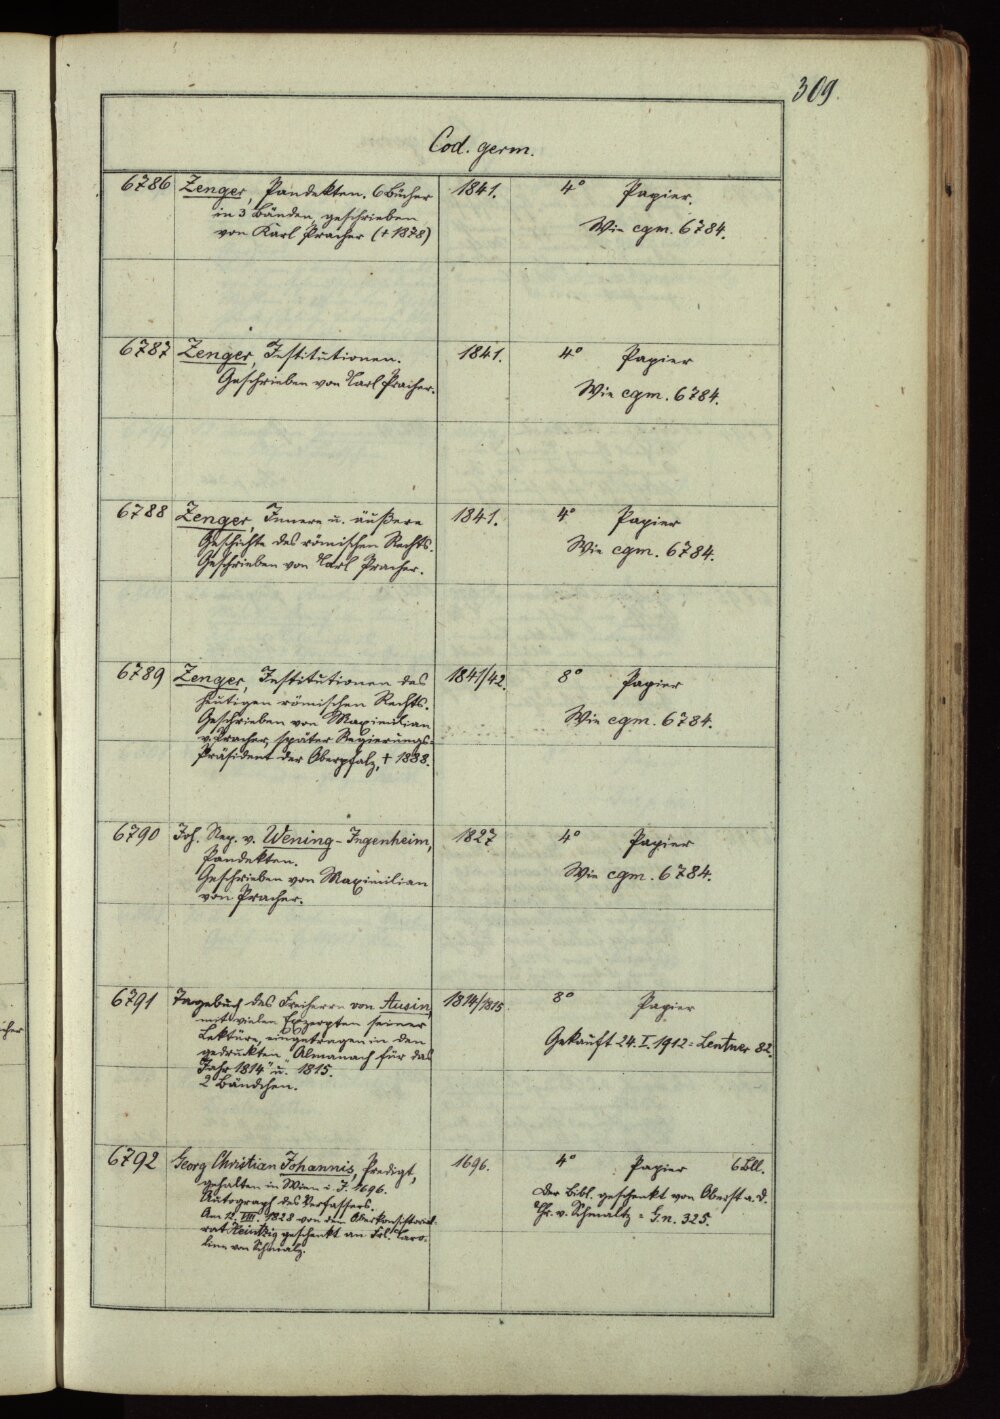 309.
Cod. germ.
6786 Zenger, Pandekten. 6 Bücher 1841. 4° Papier.
in 3 Bänden, geschrieben Wie cgm. 6784.
von Karl Pracher († 1878)
6787 Zenger, Institutionen. 1841. 4° Papier
Geschrieben von Karl Pracher. Wie cgm. 6784.
6788 Zenger, Innere u. äußere 1841. 4° Papier
Geschichte des römischen Rechts. Wie cgm. 6784.
Geschrieben von Karl Pracher.
6789 Zenger, Institutionen des 1841/42. 8° Papier
heutigen römischen Rechts.
Geschrieben von Maximilian Wie cgm. 6784.
v. Pracher, später Regierungs-
Präsident der Oberpfalz, † 1888.
6790 Joh. Nep. v. Wening-Ingenheim, 1827 4° Papier
Pandekten.
Geschrieben von Maximilian Wie cgm. 6784.
von Pracher.
6791 Tagebuch des Freiherrn von Ausin, 1814/1815 8° Papier
mit vielen Exzerpten seiner
Lektüre, eingetragen in den Gekauft 24. I. 1912 = Lentner 82.
gedruckten "Almanach für das
Jahr 1814" u. 1815.
2 Bändchen.
6792 Georg Christian Johannis, Predigt, 1696. 4° Papier 6 Bll.
gehalten in Wien i. J. 1696. Der Bibl. geschenkt von Oberst a. D.
Autograph des Verfassers. Chr. v. Schmaltz = G. n. 325.
Am 12. VIII. 1828 von dem Oberkonsistorial-
rat Heintz geschenkt an Frl. Caro-
line von Schmalz.